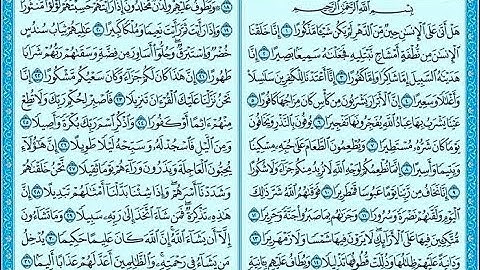 بِسْمِ اللَّهِ الرَّحْمَٰنِ الرَّحِيمِ
هَلْ أَتَىٰ عَلَى الْإِنسَٰنِ حِينٌ مِّنَ الدَّهْرِ لَمْ يَكُن شَيْئًا مَّذْكُورًا ١ إِنَّا خَلَقْنَا
الْإِنسَٰنَ مِن نُّطْفَةٍ أَمْشَاجٍ نَّبْتَلِيهِ فَجَعَلْنَٰهُ سَمِيعًا بَصِيرًا ٢ إِنَّا
هَدَيْنَٰهُ السَّبِيلَ إِمَّا شَاكِرًا وَإِمَّا كَفُورًا ٣ إِنَّا أَعْتَدْنَا لِلْكَٰفِرِينَ سَلَٰسِلَا
وَأَغْلَٰلًا وَسَعِيرًا ٤ إِنَّ الْأَبْرَارَ يَشْرَبُونَ مِن كَأْسٍ كَانَ مِزَاجُهَا كَافُورًا ٥
عَيْنًا يَشْرَبُ بِهَا عِبَادُ اللَّهِ يُفَجِّرُونَهَا تَفْجِيرًا ٦ يُوفُونَ بِالنَّذْرِ وَيَخَافُونَ
يَوْمًا كَانَ شَرُّهُ مُسْتَطِيرًا ٧ وَيُطْعِمُونَ الطَّعَامَ عَلَىٰ حُبِّهِ مِسْكِينًا
وَيَتِيمًا وَأَسِيرًا ٨ إِنَّمَا نُطْعِمُكُمْ لِوَجْهِ اللَّهِ لَا نُرِيدُ مِنكُمْ جَزَاءً وَلَا شُكُورًا
٩ إِنَّا نَخَافُ مِن رَّبِّنَا يَوْمًا عَبُوسًا قَمْطَرِيرًا ١٠ فَوَقَىٰهُمُ اللَّهُ شَرَّ ذَٰلِكَ
الْيَوْمِ وَلَقَّىٰهُمْ نَضْرَةً وَسُرُورًا ١١ وَجَزَىٰهُم بِمَا صَبَرُوا جَنَّةً وَحَرِيرًا ١٢
مُّتَّكِئِينَ فِيهَا عَلَى الْأَرَائِكِ لَا يَرَوْنَ فِيهَا شَمْسًا وَلَا زَمْهَرِيرًا ١٣
وَدَانِيَةً عَلَيْهِمْ ظِلَٰلُهَا وَذُلِّلَتْ قُطُوفُهَا تَذْلِيلًا ١٤ وَيُطَافُ عَلَيْهِم بِـَٔانِيَةٍ
١٨ وَيَطُوفُ عَلَيْهِمْ وِلْدَٰنٌ مُّخَلَّدُونَ إِذَا رَأَيْتَهُمْ حَسِبْتَهُمْ لُؤْلُؤًا مَّنثُورًا
١٩ وَإِذَا رَأَيْتَ ثَمَّ رَأَيْتَ نَعِيمًا وَمُلْكًا كَبِيرًا ٢٠ عَٰلِيَهُمْ ثِيَابُ سُندُسٍ
خُضْرٌ وَإِسْتَبْرَقٌ وَحُلُّوا أَسَاوِرَ مِن فِضَّةٍ وَسَقَىٰهُمْ رَبُّهُمْ شَرَابًا
طَهُورًا ٢١ إِنَّ هَٰذَا كَانَ لَكُمْ جَزَاءً وَكَانَ سَعْيُكُم مَّشْكُورًا ٢٢ إِنَّا
نَحْنُ نَزَّلْنَا عَلَيْكَ الْقُرْءَانَ تَنزِيلًا ٢٣ فَاصْبِرْ لِحُكْمِ رَبِّكَ وَلَا تُطِعْ
مِنْهُمْ ءَاثِمًا أَوْ كَفُورًا ٢٤ وَاذْكُرِ اسْمَ رَبِّكَ بُكْرَةً وَأَصِيلًا ٢٥
وَمِنَ الَّيْلِ فَاسْجُدْ لَهُ وَسَبِّحْهُ لَيْلًا طَوِيلًا ٢٦ إِنَّ هَٰؤُلَاءِ
يُحِبُّونَ الْعَاجِلَةَ وَيَذَرُونَ وَرَاءَهُمْ يَوْمًا ثَقِيلًا ٢٧ نَّحْنُ خَلَقْنَٰهُمْ
وَشَدَدْنَا أَسْرَهُمْ وَإِذَا شِئْنَا بَدَّلْنَا أَمْثَٰلَهُمْ تَبْدِيلًا ٢٨ إِنَّ
هَٰذِهِ تَذْكِرَةٌ فَمَن شَاءَ اتَّخَذَ إِلَىٰ رَبِّهِ سَبِيلًا ٢٩ وَمَا تَشَاءُونَ
إِلَّا أَن يَشَاءَ اللَّهُ إِنَّ اللَّهَ كَانَ عَلِيمًا حَكِيمًا ٣٠ يُدْخِلُ
مَن يَشَاءُ فِي رَحْمَتِهِ وَالظَّٰلِمِينَ أَعَدَّ لَهُمْ عَذَابًا أَلِيمًا ٣١